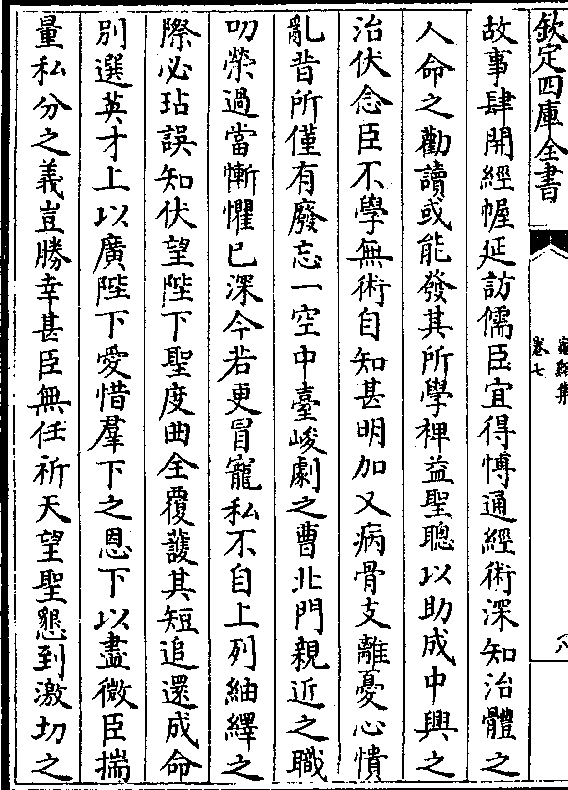 欽定四庫全書
卷七
八
故事肆開經幄延訪儒臣宜得博通經術深知治體之
人命之勸讀或能發其所學裨益聖聰以助成中興之
治伏念臣不學無術自知甚明加又病骨支離憂心憒
亂昔所僅有廢忘一空中臺峻劇之曹北門親近之職
叨榮過當慚懼已深今若更冒寵私不自上列紬繹之
際必玷誤知伏望陛下聖度曲全覆護其短追還成命
別選英才上以廣陛下愛惜羣下之恩下以盡微臣揣
量私分之義豈勝幸甚臣無任祈天望聖懇到激切之